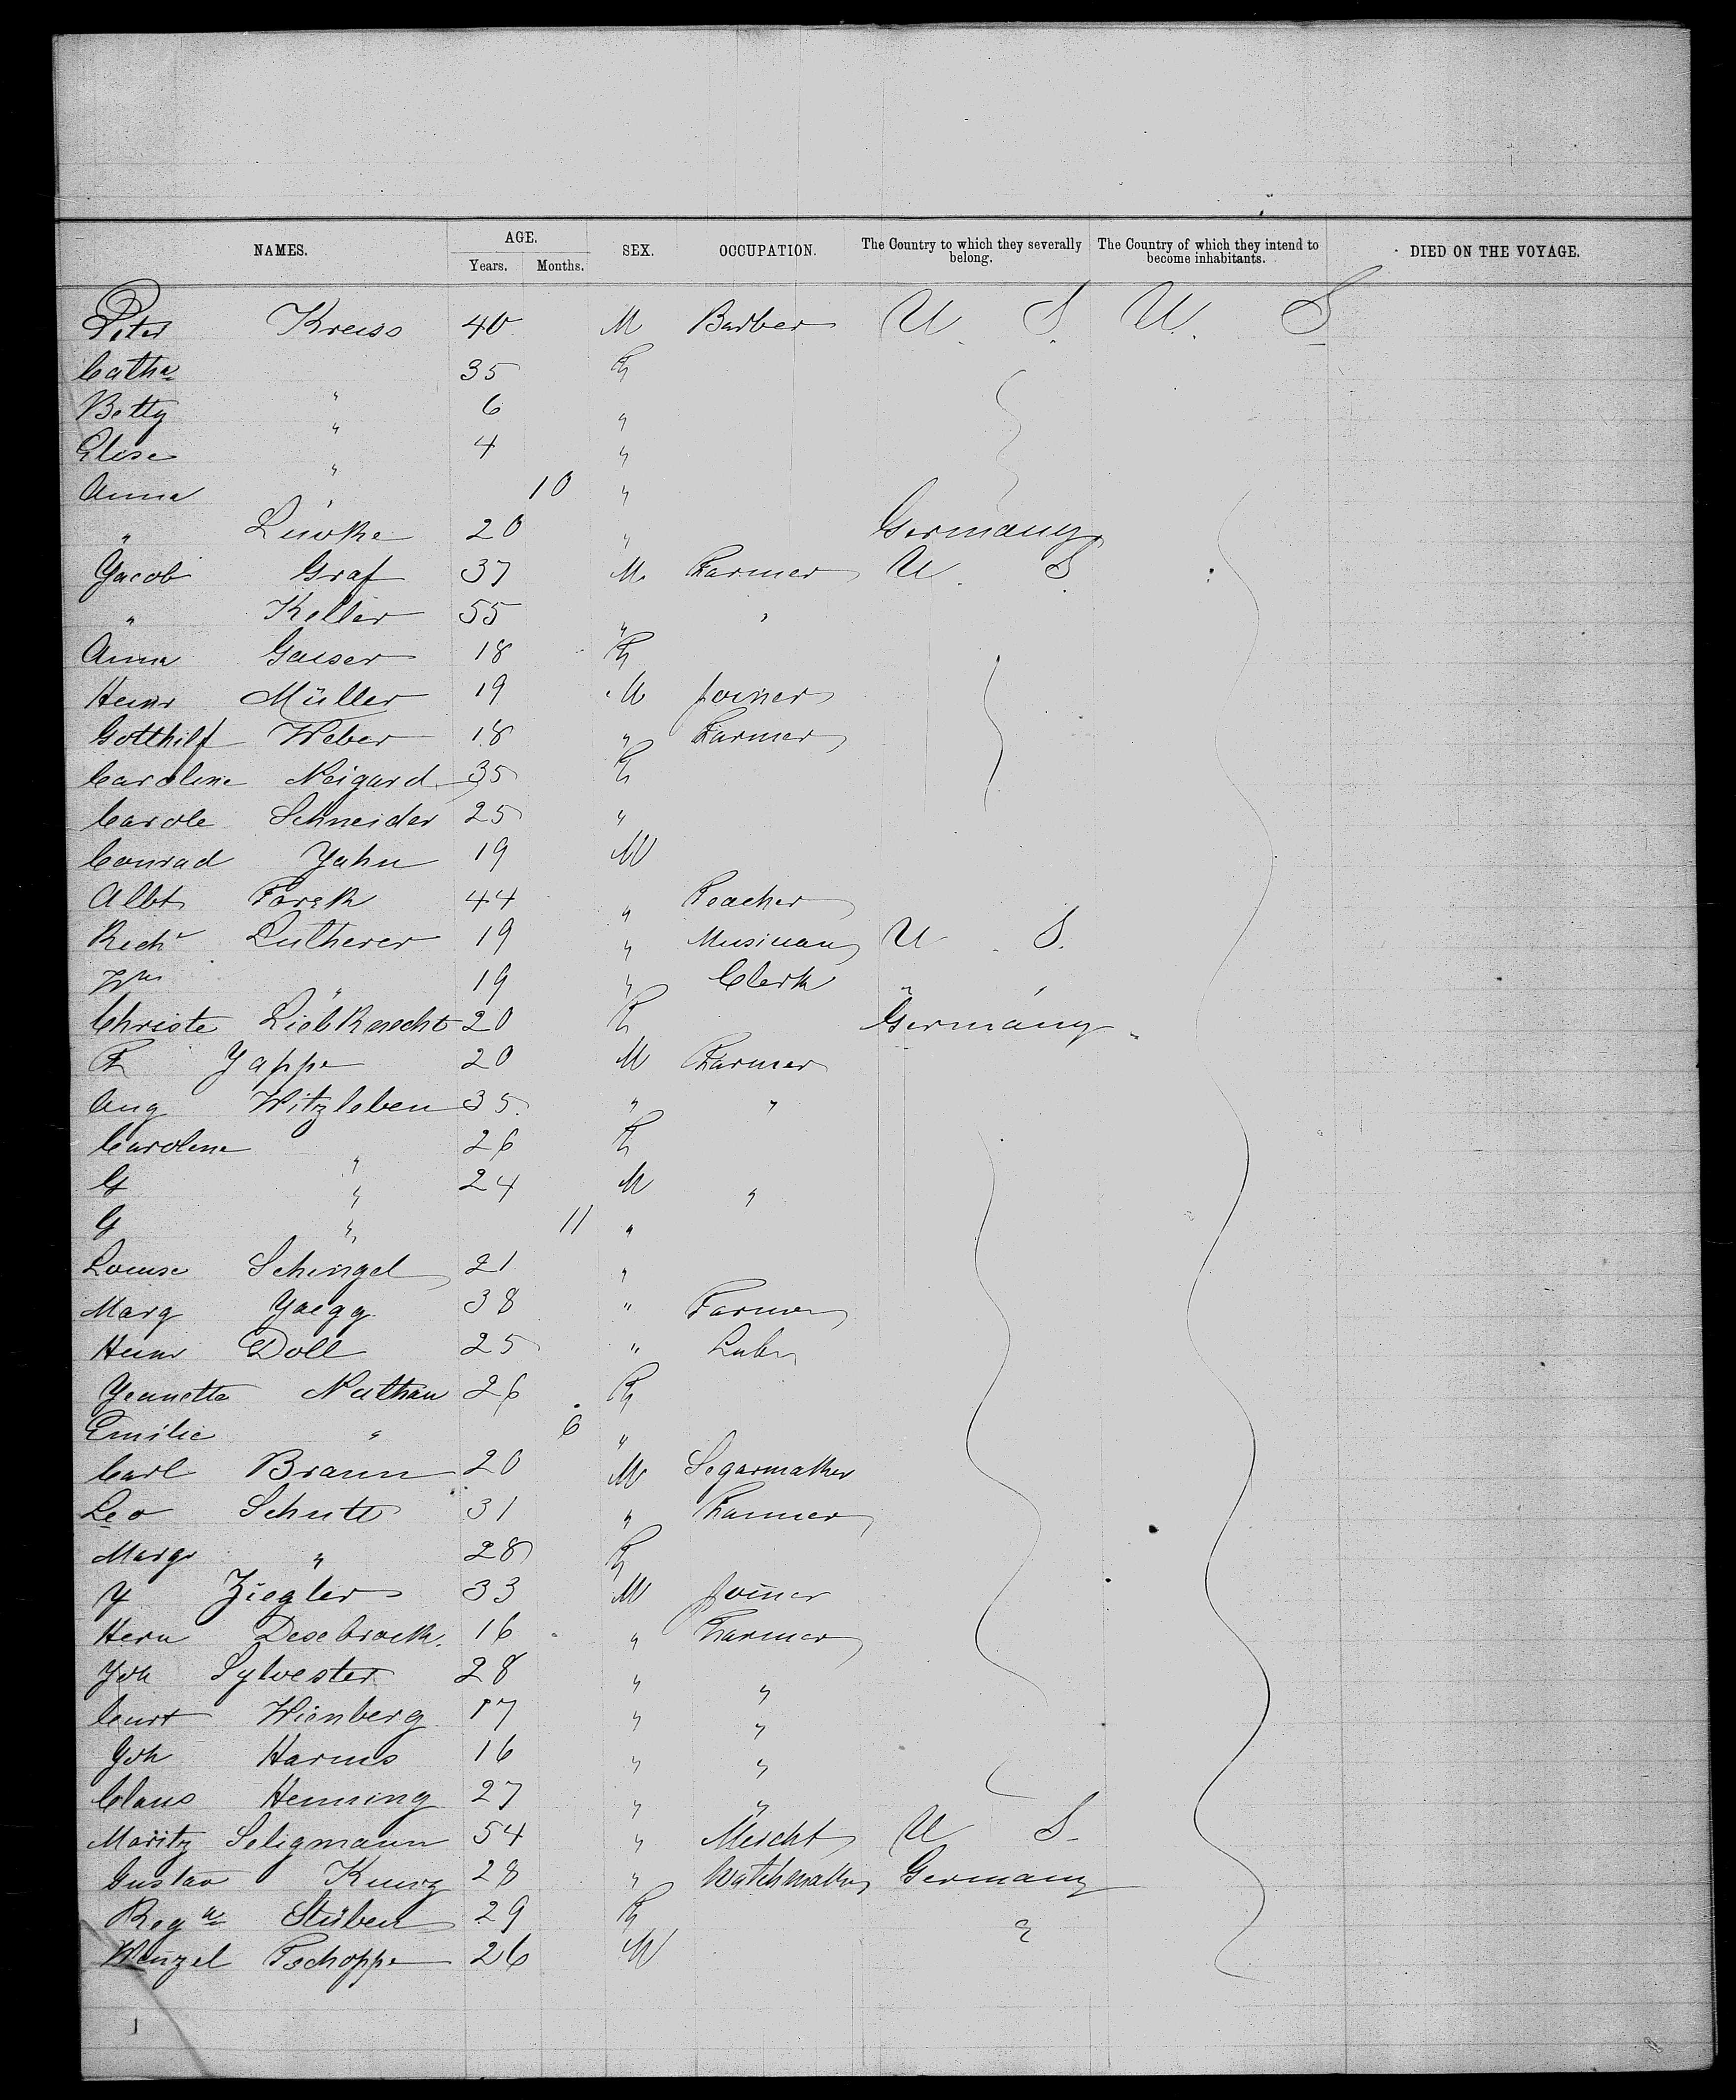 NAMES. AGE. SEX. OCCUPATION. The Country to which they severally belong. The Country of which they intend to become inhabitants. DIED ON THE VOYAGE.
Years. Months.
Peter Kreiss 40 M Barber U. S. U. S
Cathe " 35 F
Betty " 6 "
Elise " 4 "
Anna " 10 "
" 20 " Germany
Jacob Graf 37 M Farmer U. S.
" Keller 55 " "
Anna Gaiser 18 F
Heinr Müller 19 M Joiner
Gotthilf Weber 18 " Farmer
Caroline Neigard 35 F
Carole Schneider 25 "
Conrad Jahn 19 M
Albt 44 " Teacher
Richd Lutherer 19 " Musician U. S.
Wm " 19 " Clerk " "
Christe Liebknecht 20 F Germany
F Jappe 20 M Farmer
Aug Witzleben 35 " "
Caroline " 26 F
G " 24 M "
G " 11 "
Louise Schingel 21 "
Marg Jaegg 38 " Farmer
Heinr Doll 25 " Labr
Jeanette Nathan 26 F
Emilie " 6 "
Carl Braun 20 M Segarmaker
Leo Schutt 31 " Farmer
Margr " 28 F
J Ziegler 33 M Joiner
Herm Desebrock 16 " Farmer
Joh Sylvester 28 " "
Curt Wienberg 17 " "
Joh Harms 16 " "
Claus Henning 27 " "
Moritz Seligmann 54 " Mercht U S.
Gustav Kunz 28 " Watchmaker Germany
Rega Stüben 29 F "
Wenzel Tschoppe 26 M